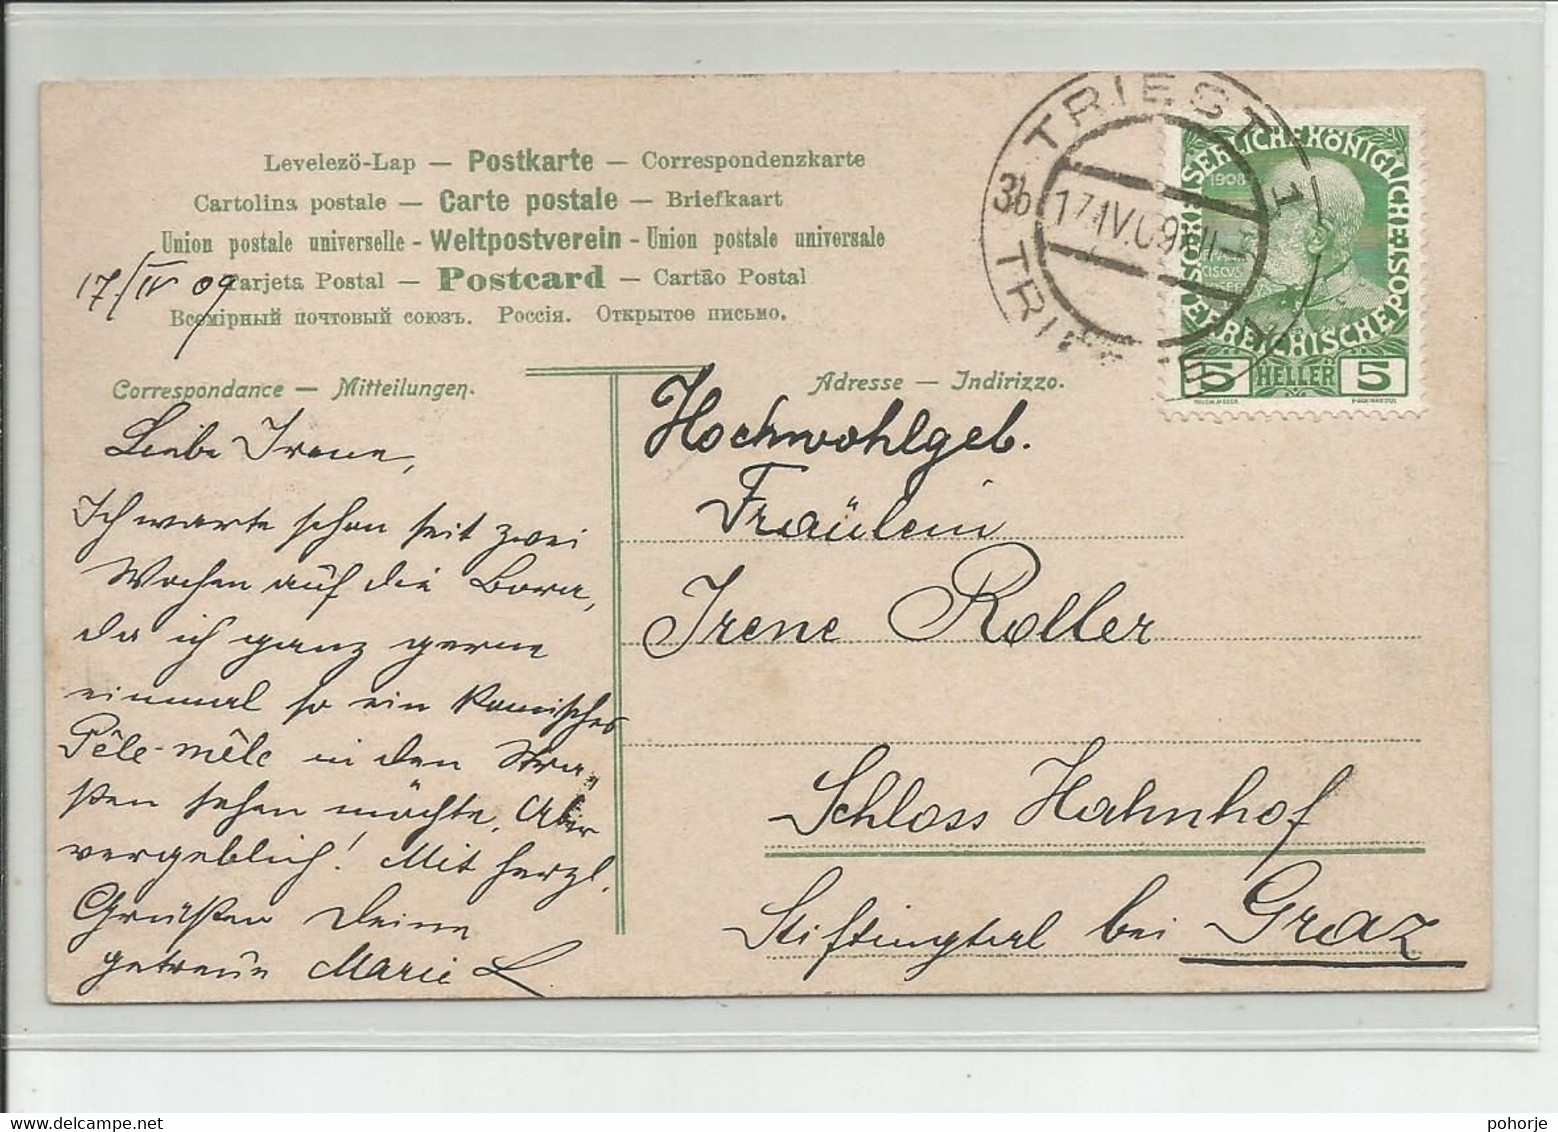 Levelezö-Lap — Postkarte — Correspondenzkarte
Cartolina postale — Carte postale — Briefkaart
Union postale universelle - Weltpostverein - Union postale universale
Tarjeta Postal — Postcard — Cartão Postal
Всемірный почтовый союзъ. Россія. Открытое письмо.
17/IV 09
TRIEST 1
3b
17.IV.09
TRIESTE
KAISERLICHE KÖNIGLICHE ÖSTERREICHISCHE POST
1908
5 HELLER 5
Correspondance — Mitteilungen.
Adresse — Indirizzo.
Liebe Irene,
Ich warte schon seit zwei
Wochen auf die Bora,
da ich ganz gerne
einmal so ein komisches
Pêle-mêle in den Stra-
ßen sehen möchte. Aber
vergeblich! Mit herzl.
Grüßen Deine
getreue Marie L
Hochwohlgeb.
Fräulein
Irene Roller
Schloss Hahnhof
Stiftingtal bei Graz
pohorje